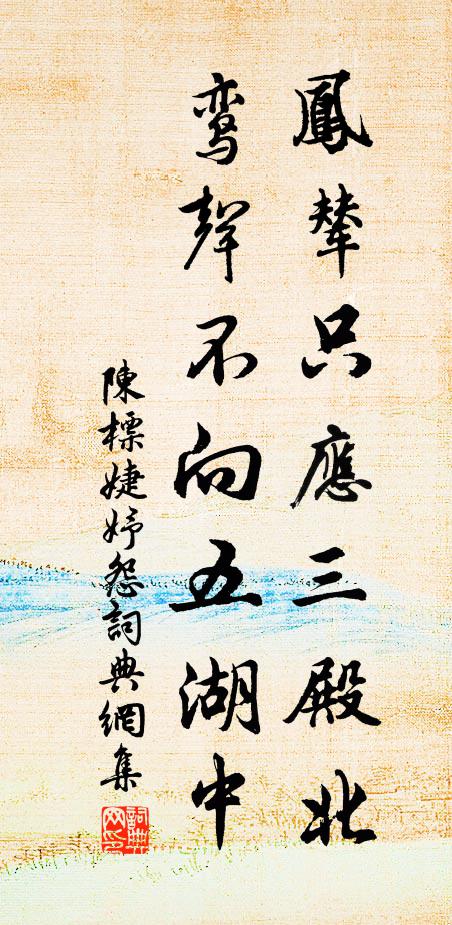 鳳輦只應三殿北
鸾聲不向五湖中
陳標婕妤怨詞典網集